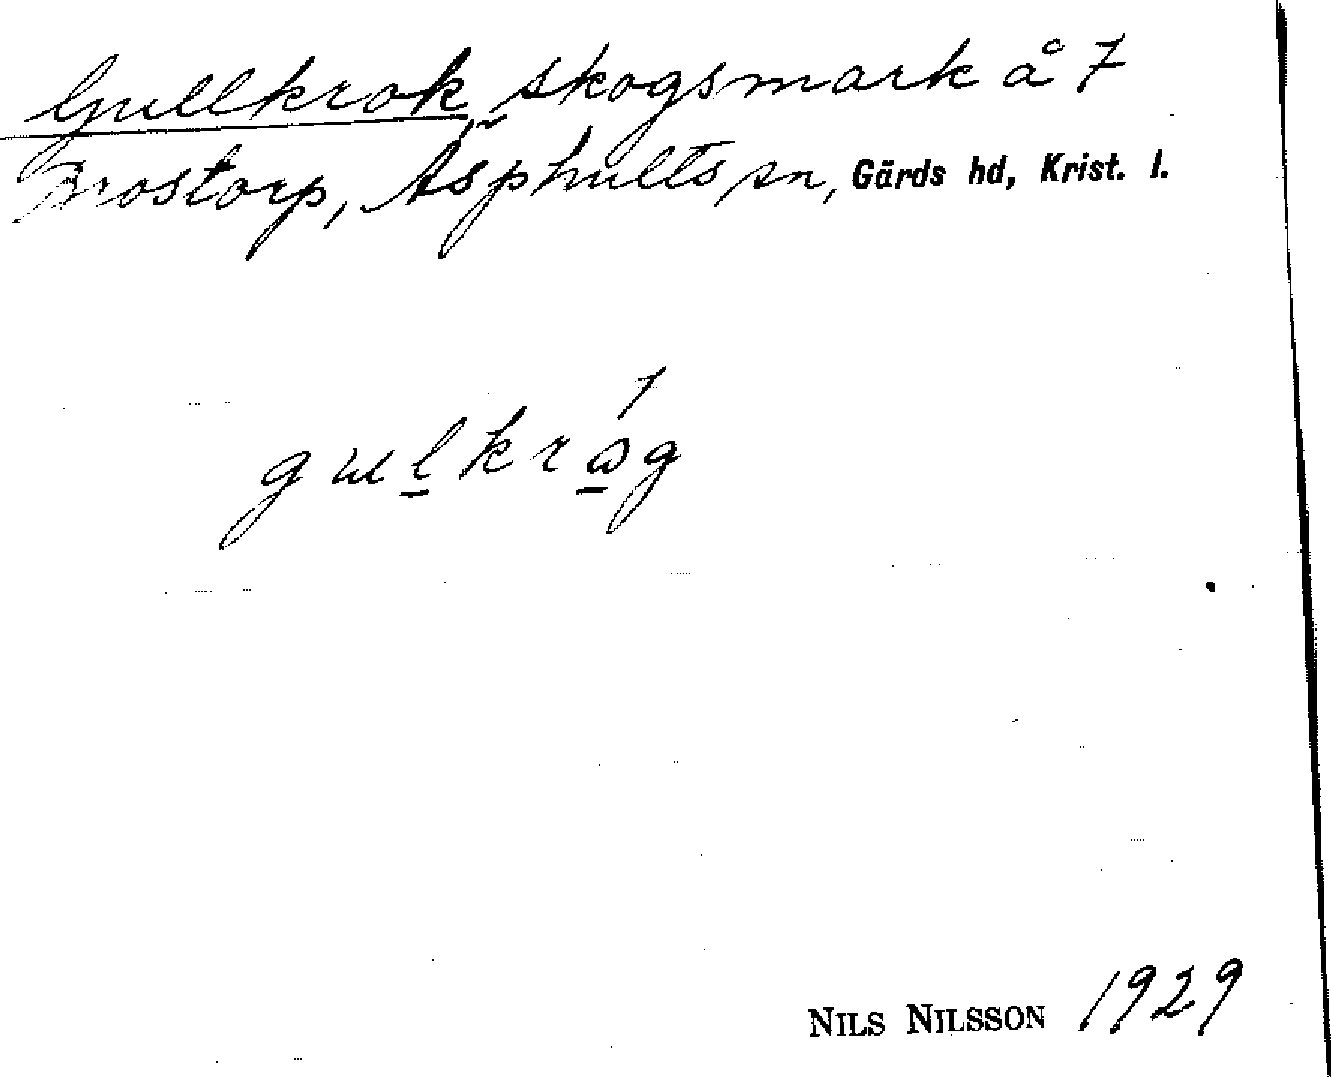 Gullkrok, skogsmark å 7
Brostorp, Äsphults sn, Gärds hd, Krist. l.
gulkrǻg
NILS NILSSON 1929